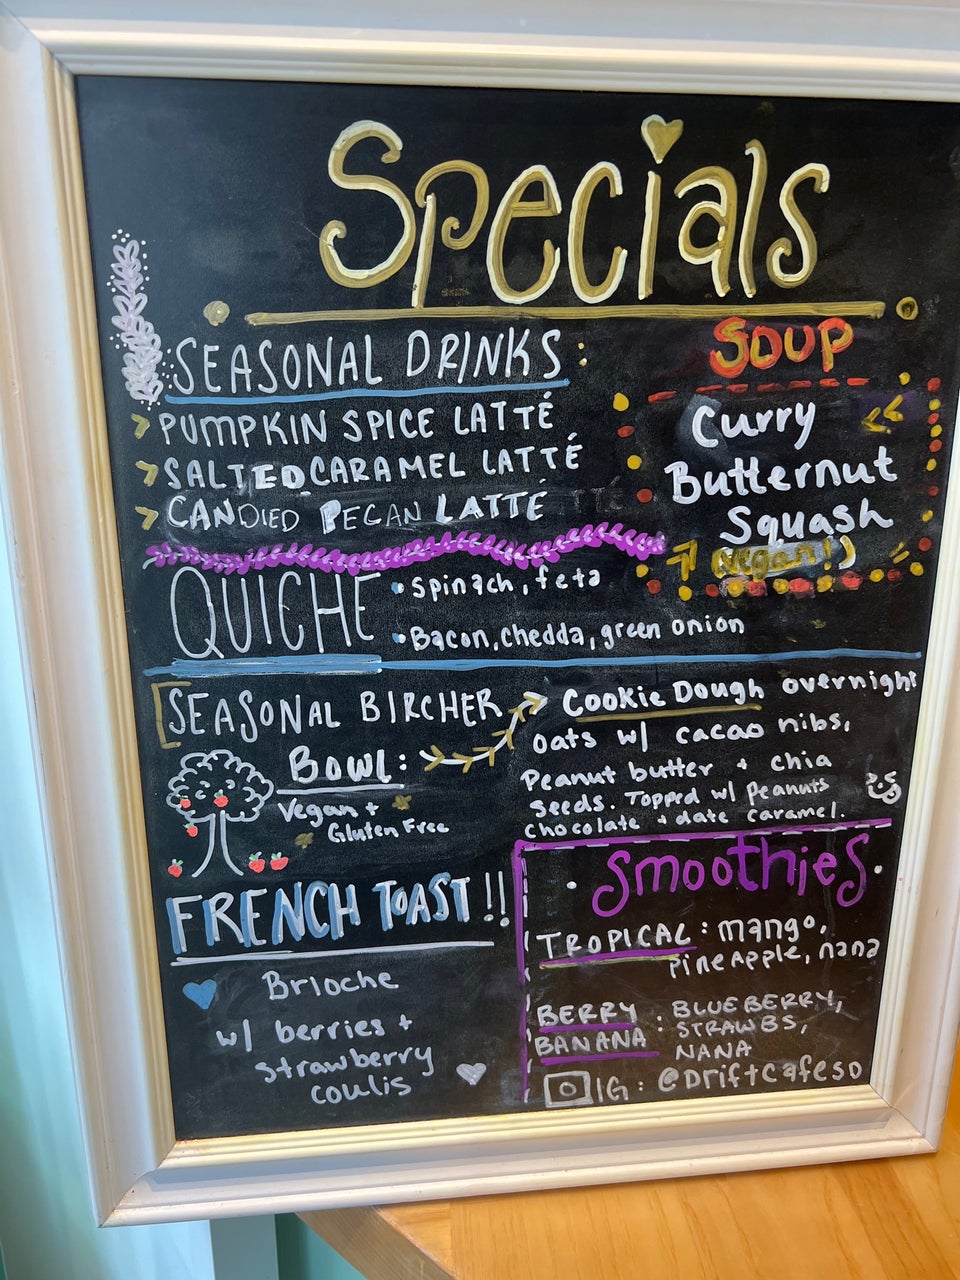 Specials
SEASONAL DRINKS:
> PUMPKIN SPICE LATTÉ
> SALTED CARAMEL LATTÉ
> CANDIED PECAN LATTÉ
SOUP
Curry
Butternut
Squash
(Vegan!)
QUICHE
• Spinach, feta
• Bacon, chedda, green onion
SEASONAL BIRCHER
BOWL:
Vegan +
Gluten Free
Cookie Dough overnight
oats w/ cacao nibs,
Peanut butter + chia
seeds. Topped w/ Peanuts
chocolate + date caramel.
FRENCH TOAST!!
Brioche
w/ berries +
strawberry
coulis
Smoothies
TROPICAL: mango,
PineApple, nana
BERRY BANANA: BLUEBERRY,
STRAWBS,
NANA
IG: @Driftcafeso